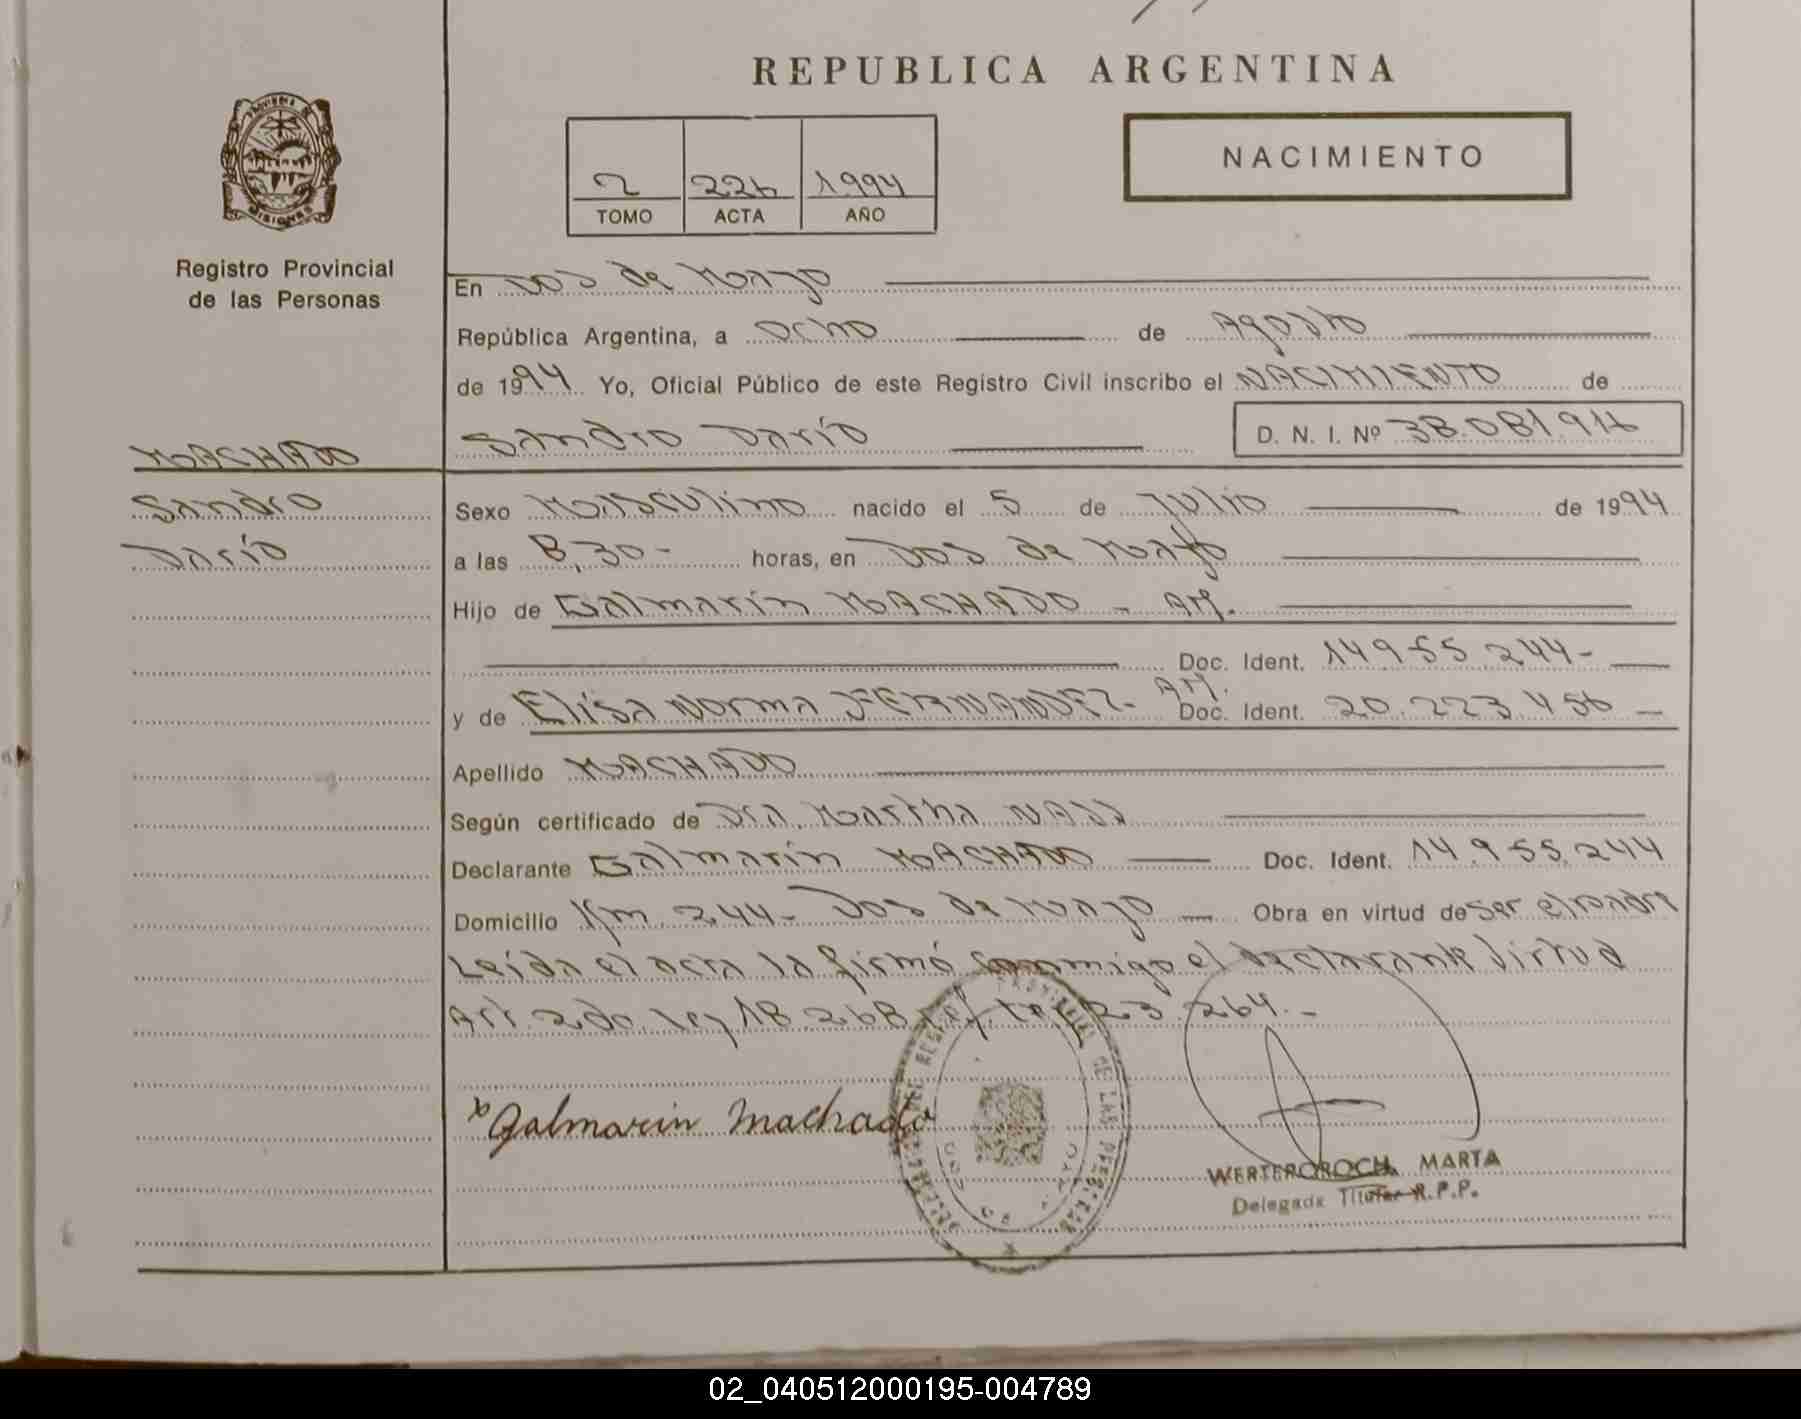 REPUBLICA ARGENTINA
NACIMIENTO
2 226 1994
TOMO ACTA AÑO
PROVINCIA DE MISIONES
Registro Provincial
de las Personas
En Dos de Mayo
República Argentina, a Ocho de Agosto
de 1994 Yo, Oficial Público de este Registro Civil inscribo el NACIMIENTO de
Sandro Darío D. N. I. Nº 38.081.916
MACHADO
Sandro
Darío
Sexo Masculino nacido el 5 de Julio de 1994
a las 8,30- horas, en Dos de Mayo
Hijo de Galmarín MACHADO - AM.
y Doc. Ident. 14.955.244-
y de Elisa Norma FERNANDEZ- AM. Doc. Ident. 20.223.456
Apellido MACHADO
Según certificado de Dra. Martha
Declarante Galmarín MACHADO Doc. Ident. 14.955.244
Domicilio Km 244- Dos de Mayo Obra en virtud de ser el padre
Leída el acta la firmó conmigo el declarante Virtud
Art. 2do Ley 18.268 Ley 23.264.-
x Galmarin Machado
DOS DE MAYO
PROVINCIAL DE LAS PERSONAS
MARTA
Delegada Titular R.P.P.
02_040512000195-004789